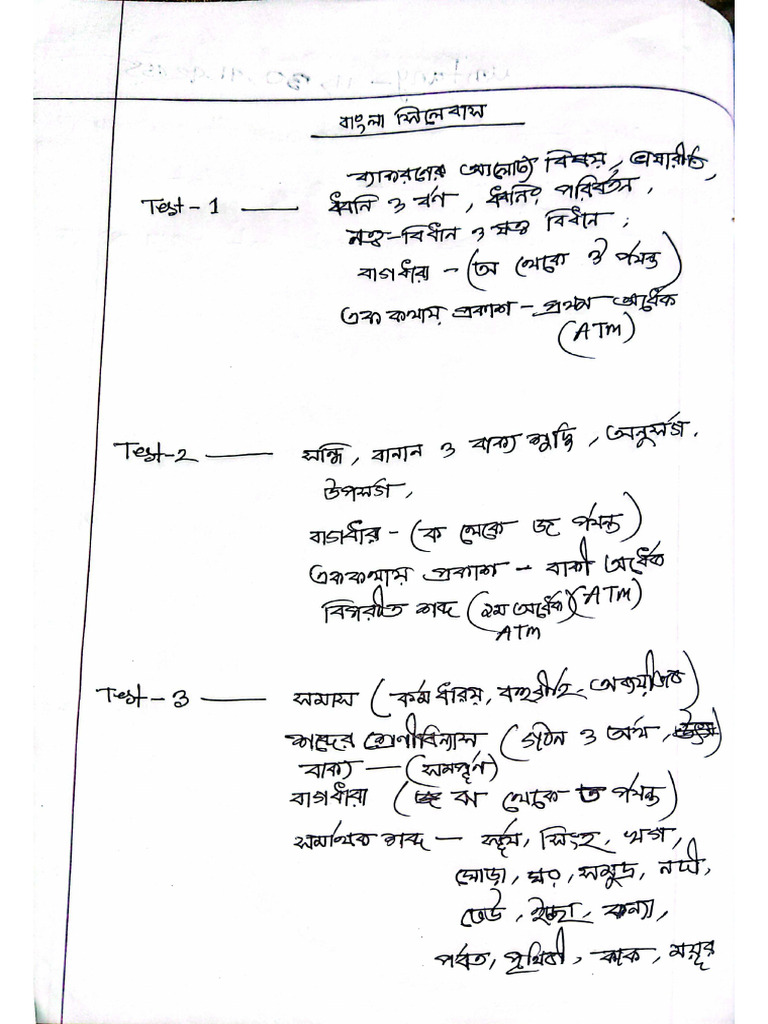 বাংলা সিলেবাস
ব্যাকরণের আলোচ্য বিষয়, ভাষারীতি,
Test-1 — ধ্বনি ও বর্ণ, ধ্বনির পরিবর্তন,
ণত্ব-বিধান ও ষত্ব বিধান,
বাগধারা - (অ থেকে ঔ পর্যন্ত)
এক কথায় প্রকাশ - প্রথম অর্ধেক
(ATM)
Test-2 — সন্ধি, বানান ও বাক্য শুদ্ধি, অনুসর্গ,
উপসর্গ,
বাগধারা - (ক থেকে জ পর্যন্ত)
এককথায় প্রকাশ - বাকী অর্ধেক
(ATM)
বিপরীত শব্দ (১ম অর্ধেক)
ATM
Test-3 — সমাস (কর্মধারয়, বহুব্রীহি, অব্যয়ীভাব)
শব্দের শ্রেণীবিন্যাস (গঠন ও অর্থ,
বাক্য — (সম্পূর্ণ)
বাগধারা (ঝ থেকে ত পর্যন্ত)
সমার্থক শব্দ - সূর্য, সিংহ, খগ,
ঘোড়া, ঘর, সমুদ্র, নদী,
ঢেউ, ইচ্ছা, কন্যা,
পর্বত, পৃথিবী, কাক, ময়ূর